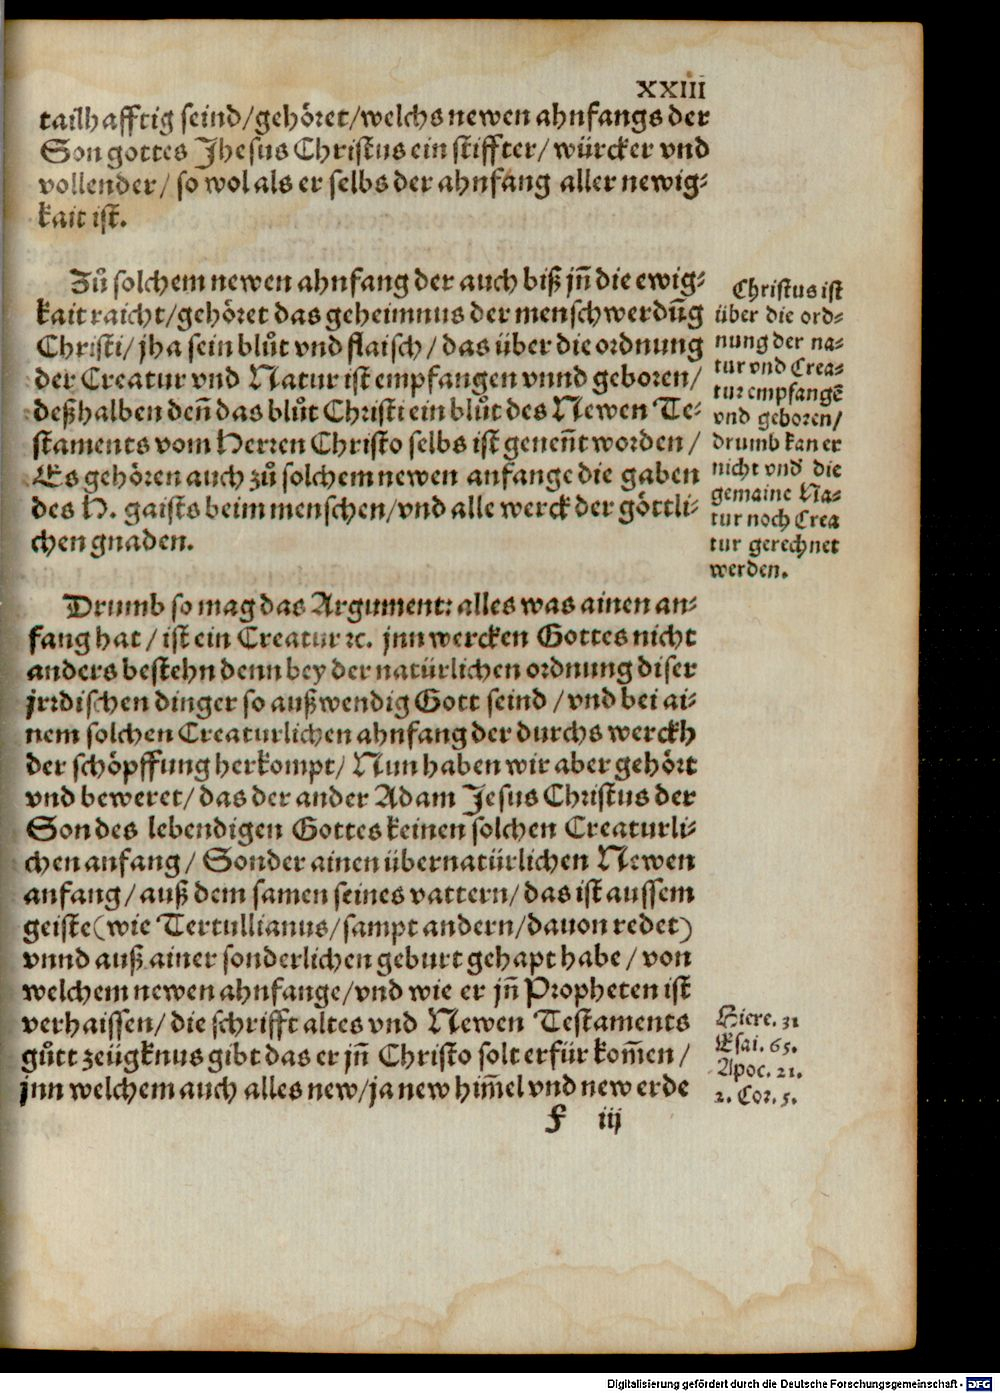 XXIII
tailhafftig seind/gehöret/welchs newen ahnfangs der
Son gottes Jhesus Christus ein stiffter/ würcker vnd
vollender/ so wol als er selbs der ahnfang aller newig⸗
kait ist.
Zů solchem newen ahnfang der auch biß jñ die ewig⸗
kait raicht/gehöret das geheimnus der menschwerdũg
Christi/ jha sein blůt vnd flaisch/ das über die ordnung
der Creatur vnd Natur ist empfangen vnnd geboren/
deßhalben deñ das blůt Christi ein blůt des Newen Te⸗
staments vom Herren Christo selbs ist geneñt worden/
Es gehören auch zů solchem newen anfange die gaben
des H. gaists beim menschen/vnd alle werck der göttli⸗
chen gnaden.
Christus ist
über die ord⸗
nung der na⸗
tur vnd Crea⸗
tur empfangẽ
vnd geboren/
drumb kan er
nicht vnd die
gemaine Na⸗
tur noch Crea
tur gerechnet
werden.
Drumb so mag das Argument: alles was ainen an⸗
fang hat/ ist ein Creatur ꝛc. jnn wercken Gottes nicht
anders bestehn denn bey der natürlichen ordnung diser
jrrdischen dinger so außwendig Gott seind/ vnd bei ai⸗
nem solchen Creaturlichen ahnfang der durchs werckh
der schöpffung herkompt/ Nun haben wir aber gehört
vnd beweret/ das der ander Adam Jesus Christus der
Son des lebendigen Gottes keinen solchen Creaturli⸗
chen anfang/ Sonder ainen übernatürlichen Newen
anfang/ auß dem samen seines vattern/ das ist aussem
geiste(wie Tertullianus/sampt andern/dauon redet)
vnnd auß ainer sonderlichen geburt gehapt habe/ von
welchem newen ahnfange/vnd wie er jñ Propheten ist
verhaissen/ die schrifft altes vnd Newen Testaments
gůtt zeügknus gibt das er jñ Christo solt erfür kom̃en/
jnn welchem auch alles new/ja new him̃el vnd new erde
Hiere. 31
Esai. 65.
Apoc. 21.
2. Cor. 5.
F iij
Digitalisierung gefördert durch die Deutsche Forschungsgemeinschaft - DFG